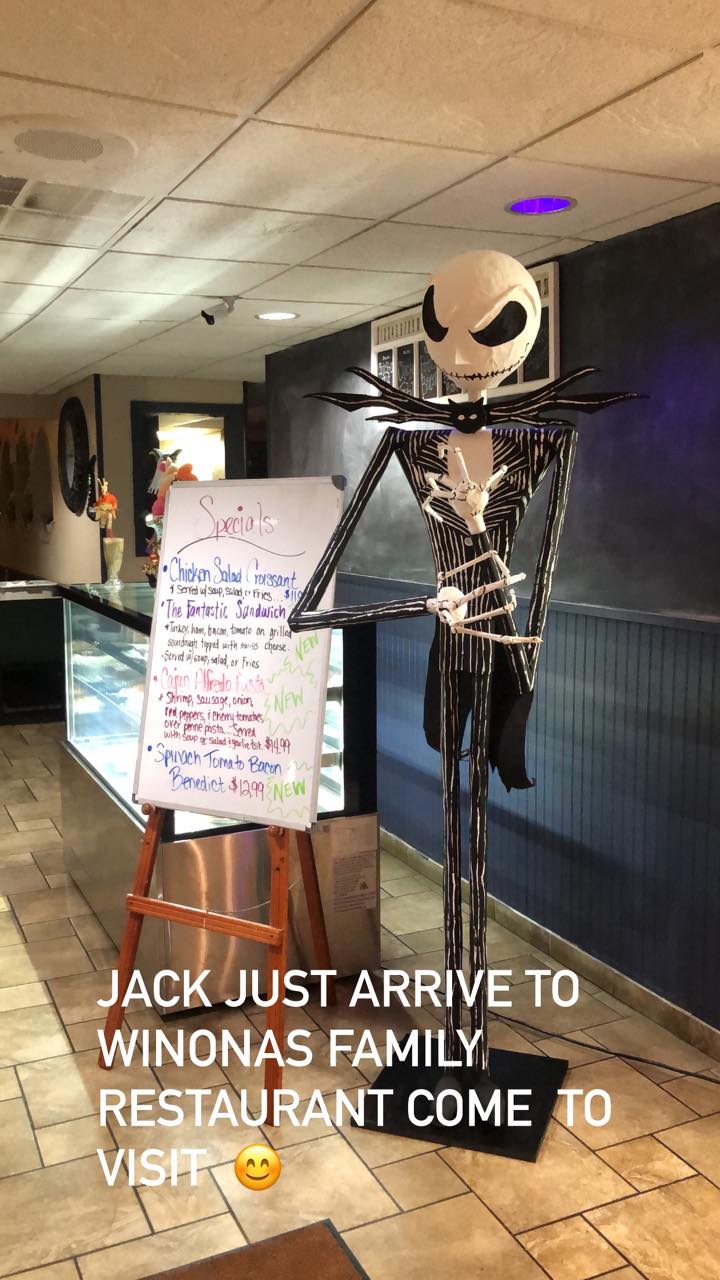 Specials
• Chicken Salad Croissant
* Served w/ soup, salad, or Fries...
• The Fantastic Sandwich
* Turkey, ham, bacon, tomato on grilled
sourdough topped with swiss cheese.
- Served w/ soup, salad, or Fries
NEW
• Cajun Alfredo Pasta
* Shrimp, sausage, onion,
red peppers, & cherry tomatoes
over penne pasta... Served
with soup or salad & garlic tst. $14.99
NEW
• Spinach Tomato Bacon
Benedict $12.99
NEW
JACK JUST ARRIVE TO
WINONAS FAMILY
RESTAURANT COME TO
VISIT 😊